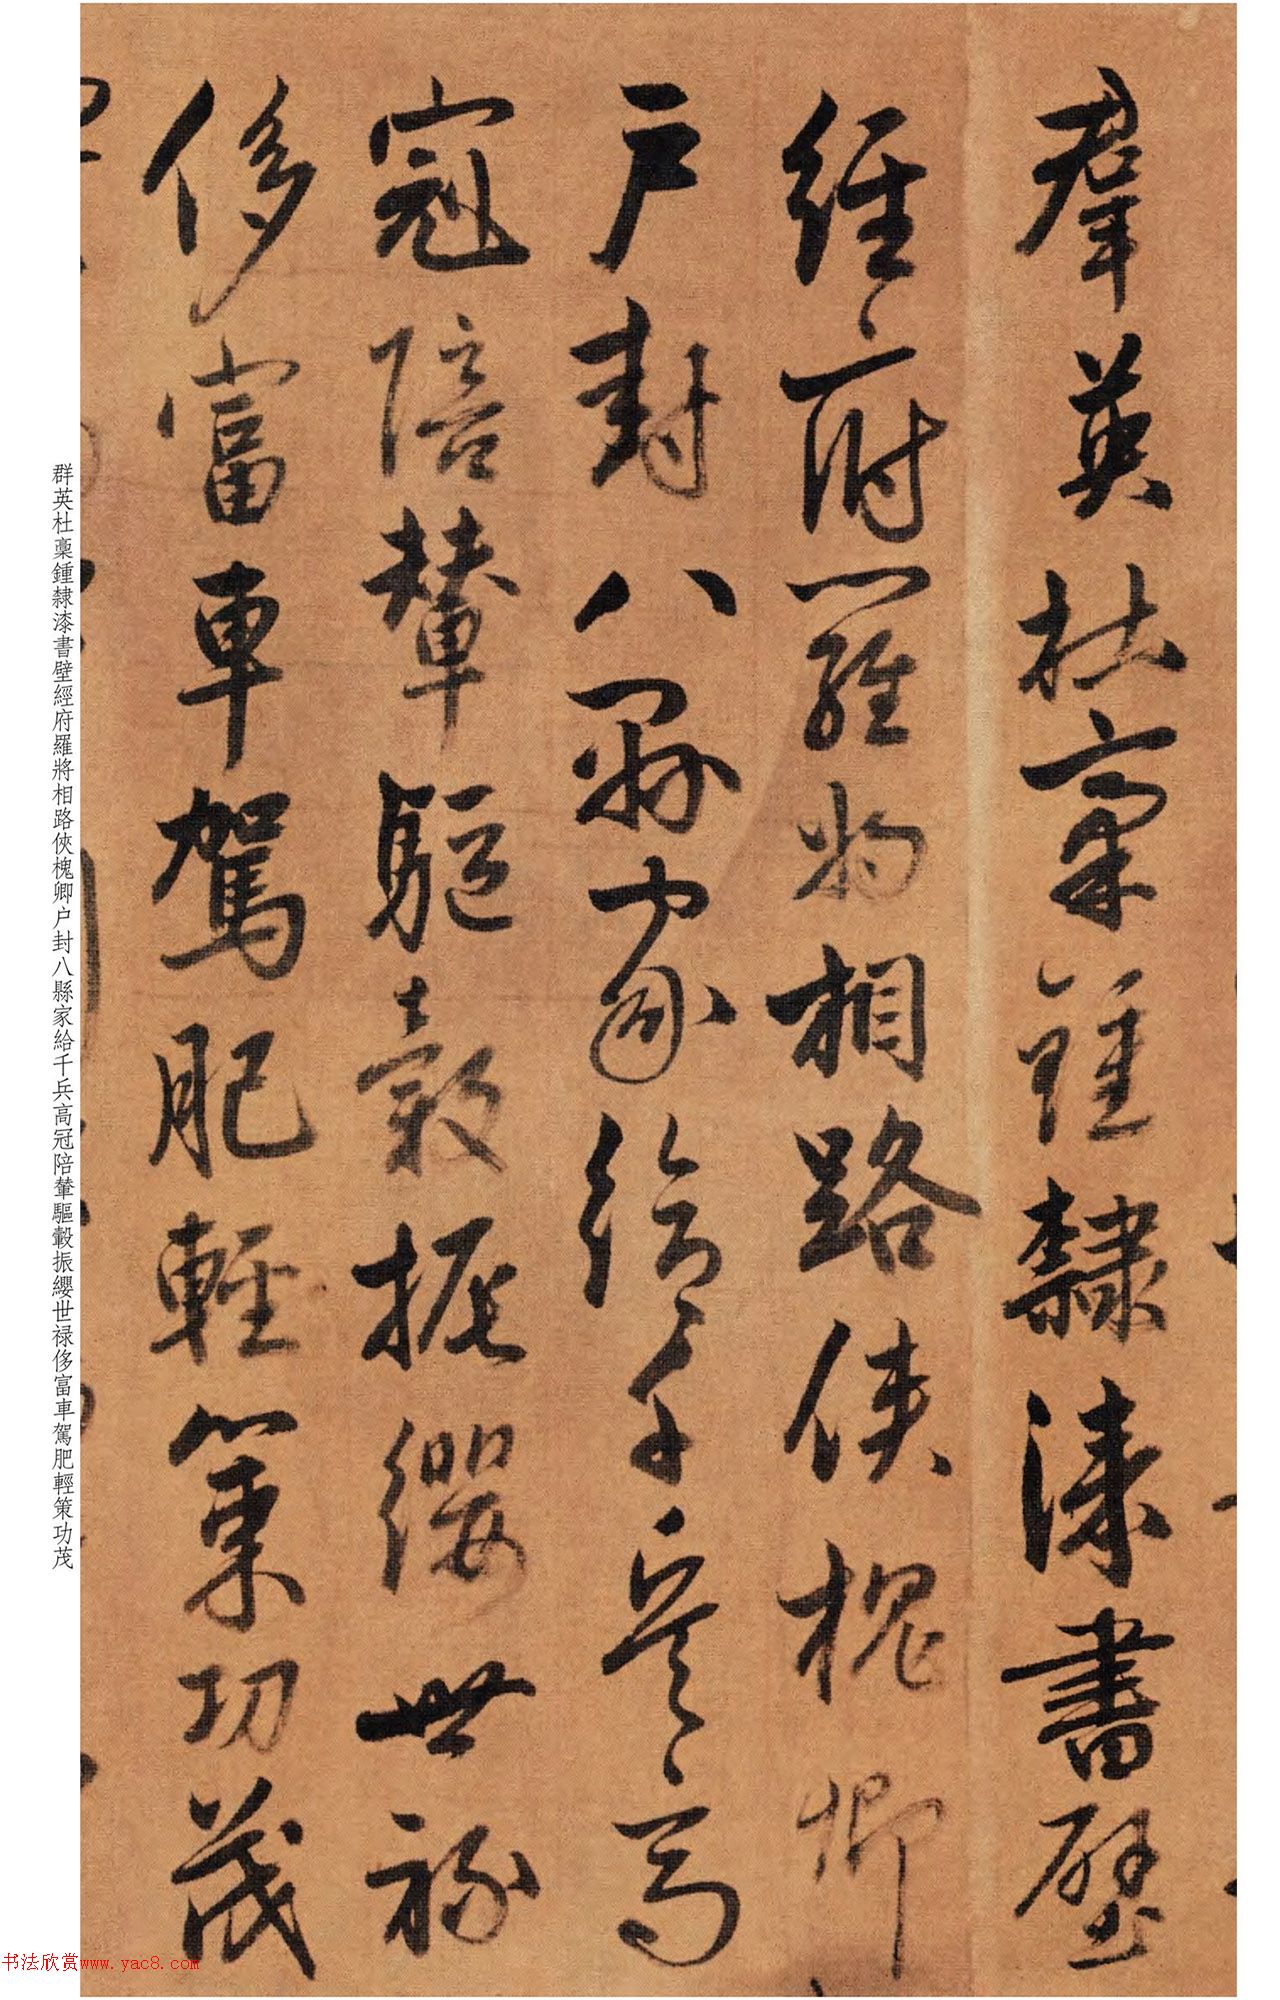 群英杜稾鍾隸漆書壁
經府羅將相路俠槐卿
户封八縣家給千兵高
冠陪輦驅轂振纓世禄
侈富車駕肥輕策功茂
群英杜稾鍾隸漆書壁經府羅將相路俠槐卿户封八縣家給千兵高冠陪輦驅轂振纓世禄侈富車駕肥輕策功茂
书法欣赏www.yac8.com